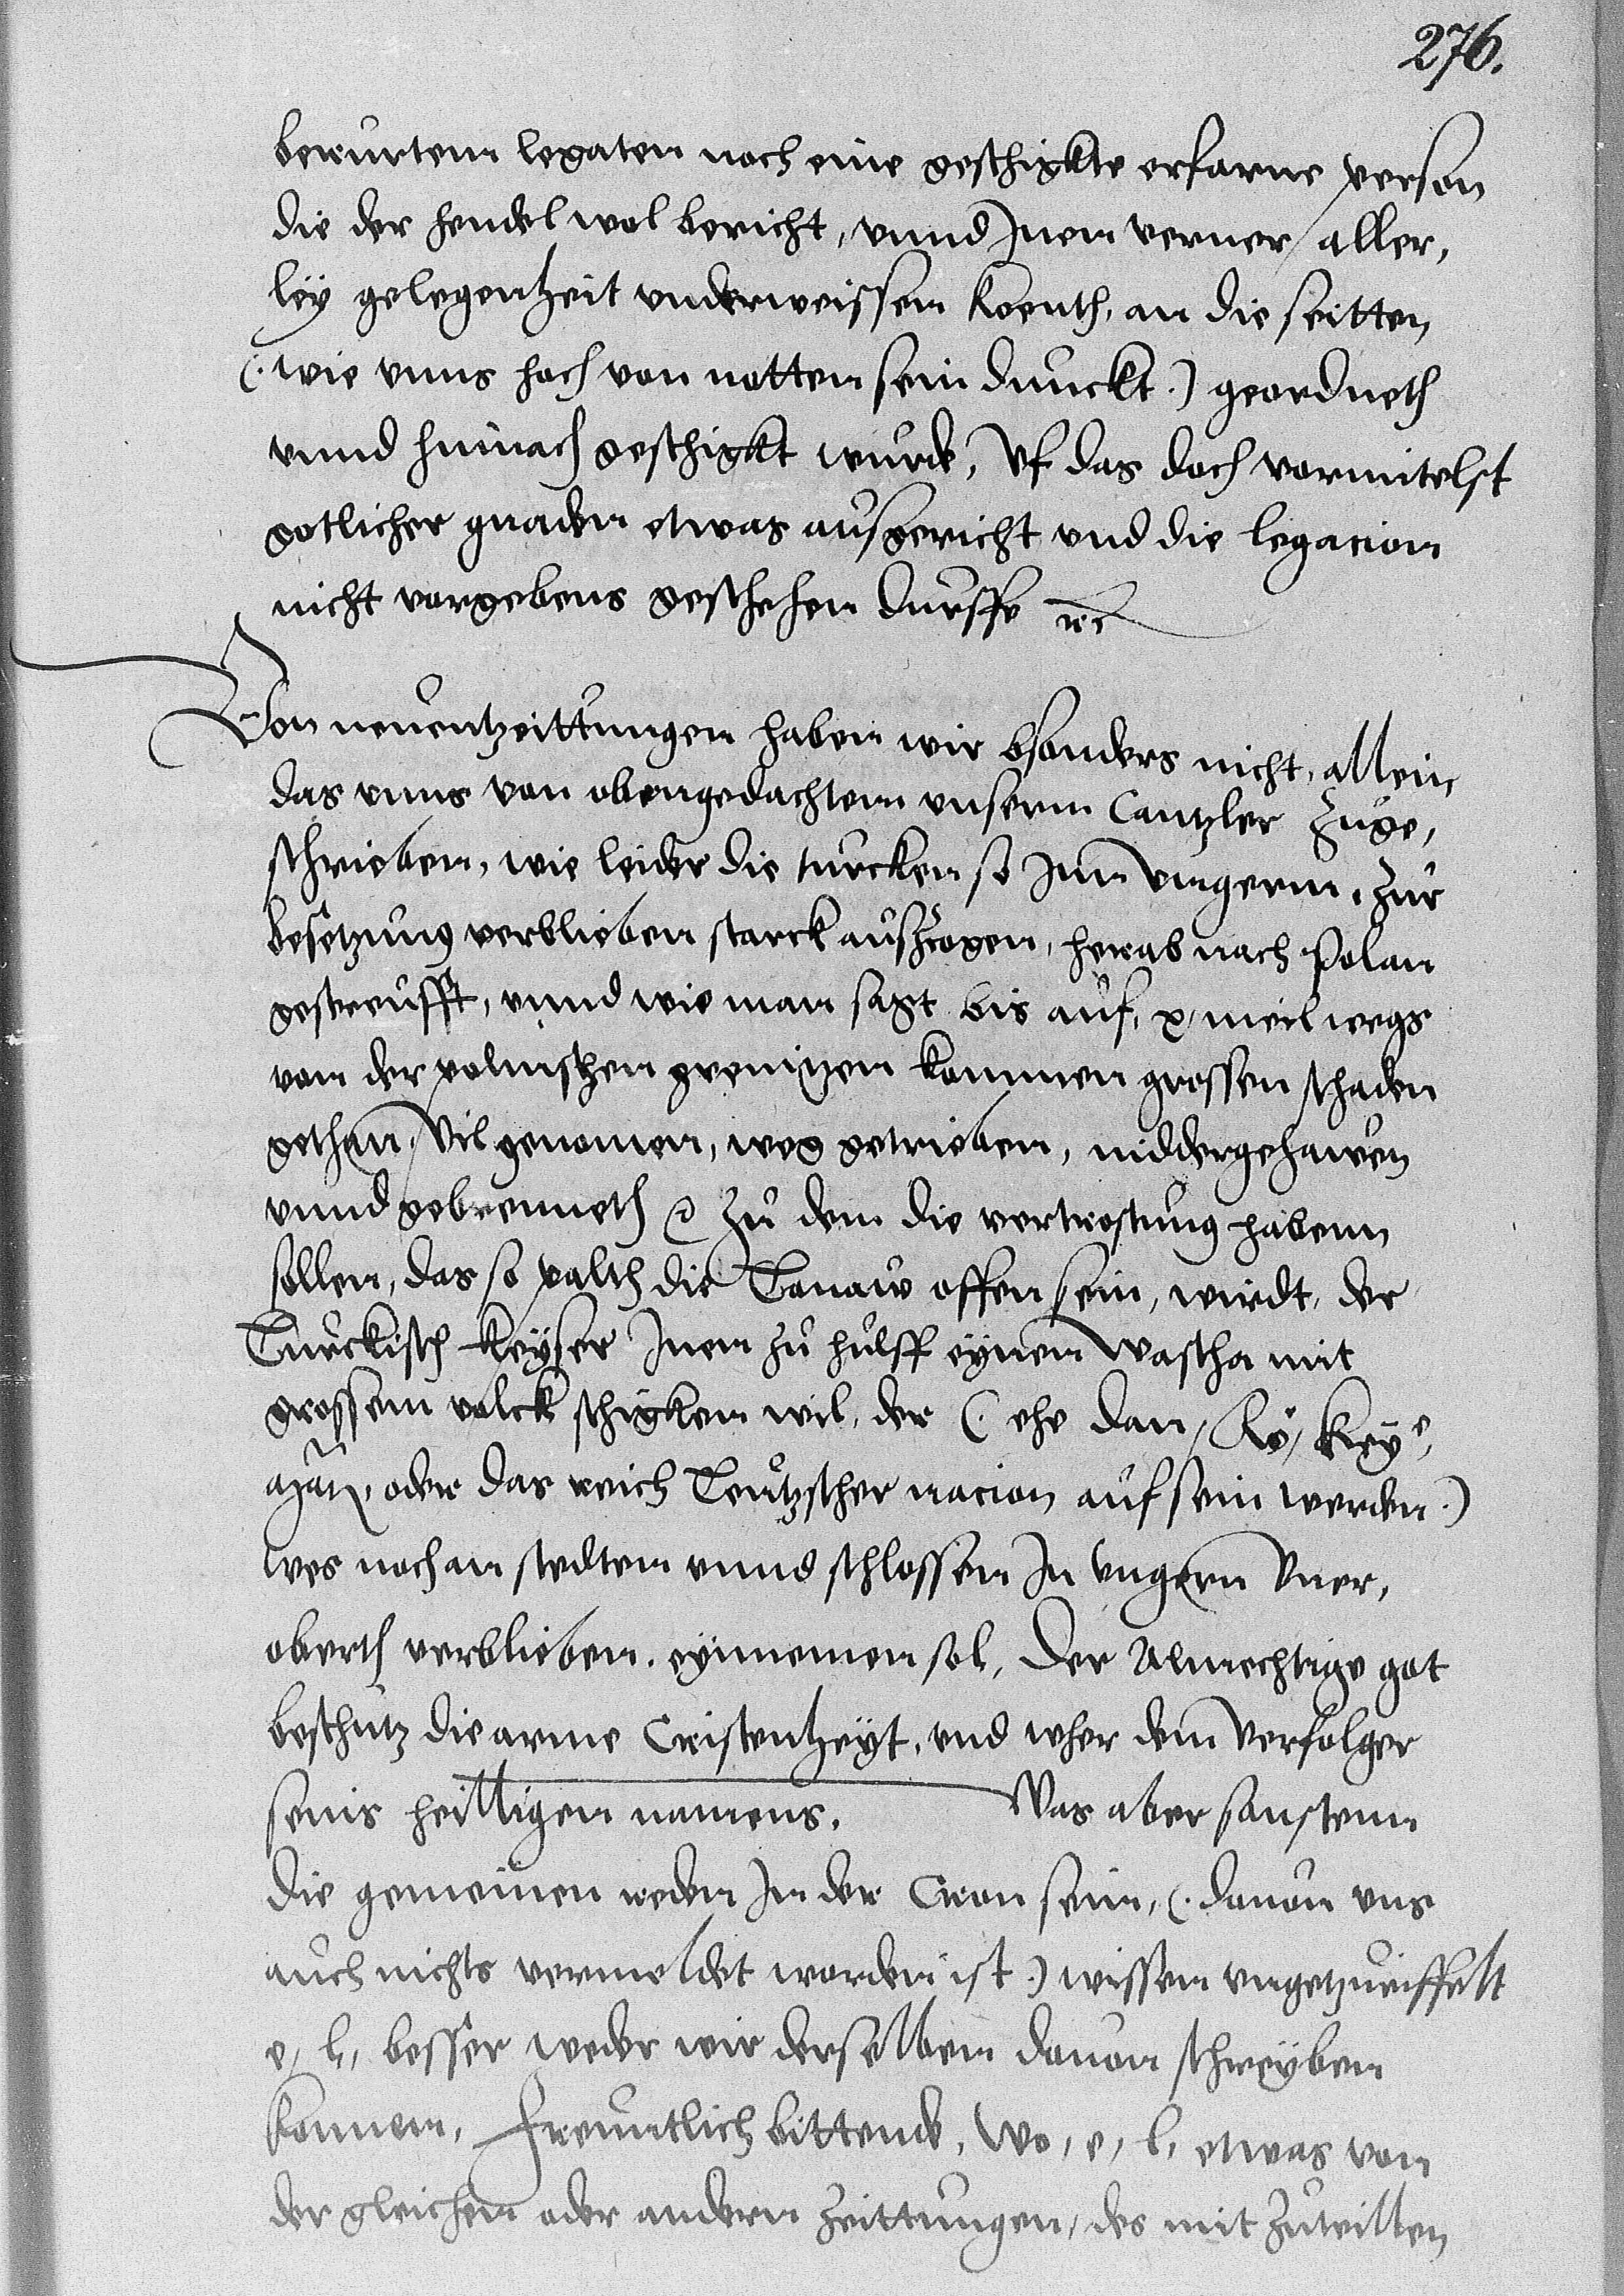 276.
berurtem legaten noch eine geschigkte erfarne person
die der hendel wol bericht, vnnd Inen verner aller,
leÿ gelegenheit underweissen kœnth, an die seitten
(: wie vnns hoch von notten sein dunckt :) geordneth
vnnd hinnach geschigkt wurde, Vf das doch vormitelst
gotlicher gnaden etwas ausgericht und die legacion
nicht vorgebens geschehen durffe rc
Von neuentzeittungen haben wir bsonders nicht, allein
das vnns von obengedachtem vnserm Cantzler Zuge,
schrieben, wie leider die turcken so Inn Vngern, zur
besetzung verblieben starck auszogen, herab nach Polan
gestreufft, vnnd wie man sagt bis auf, x, meil wegs
von der polnischen grenitzen kommen grossen schaden
gethan, Vil genomen, weg getrieben, niddergehawen
vnnd gebrenneth rc Zu dem die vertrostung habenn
sollen, das so palth die Tonaw offen sein, wirdt, der
Turckisch keÿser Inen zu hulff eÿnen Wascha mit
grossem volck schigken wil, der (: ehe dan, Rö, keÿe,
Matt, oder das reich Teutzscher nacion auf sein werden :)
wes noch an stedten vnnd schlossen In Vngern Vner,
oberth verblieben, eÿnnemen sol, Der Almechtige got
beschutz die arme Cristentheÿt, und wher dem Verfolger
seins heilligen namens. Was aber sonstenn
die gemeinen reden In der Cron sein, (: dauon vns
auch nichts vermeldet worden ist :) wissen vngetzweiffelt
e, l, besser weder wir derselben dauon schreÿben
konnen, freuntlich bittende, Wo, e, l, etwas von
der gleichen oder andern Zeittungen, des mit Zuteillen